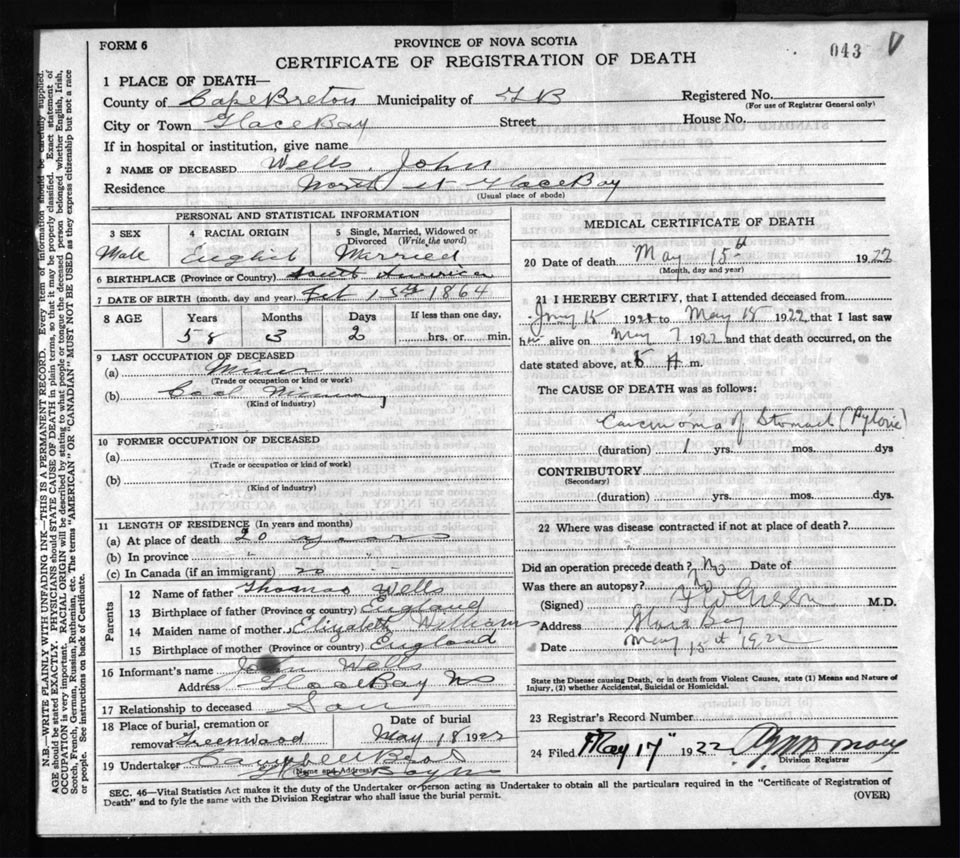 FORM 6
PROVINCE OF NOVA SCOTIA
CERTIFICATE OF REGISTRATION OF DEATH
043 V
1 PLACE OF DEATH—
County of Cape Breton Municipality of G B Registered No.
(For use of Registrar General only)
City or Town Glace Bay Street House No.
If in hospital or institution, give name
2 NAME OF DECEASED Wells, John
Residence North st Glace Bay
(Usual place of abode)
PERSONAL AND STATISTICAL INFORMATION
3 SEX 4 RACIAL ORIGIN 5 Single, Married, Widowed or Divorced (Write the word)
Male English Married
6 BIRTHPLACE (Province or Country) South America
7 DATE OF BIRTH (month, day and year) Feb 13th 1864
8 AGE Years Months Days If less than one day,
58 3 2 hrs. or min.
9 LAST OCCUPATION OF DECEASED
(a) Miner
(Trade or occupation or kind or work)
(b) Coal Mining
(Kind of industry)
10 FORMER OCCUPATION OF DECEASED
(a)
(Trade or occupation or kind of work)
(b)
(Kind of industry)
11 LENGTH OF RESIDENCE (In years and months)
(a) At place of death 20 years
(b) In province " "
(c) In Canada (if an immigrant) 20
Parents
12 Name of father Thomas Wells
13 Birthplace of father (Province or country) England
14 Maiden name of mother Elizabeth Williams
15 Birthplace of mother (Province or country) England
16 Informant's name John Wells
Address Glace Bay NS
17 Relationship to deceased Son
18 Place of burial, cremation or removal Greenwood Date of burial May 18 1922
19 Undertaker Campbell Bros
(Name and Address) Glace Bay NS
MEDICAL CERTIFICATE OF DEATH
20 Date of death May 15th 1922
(Month, day and year)
21 I HEREBY CERTIFY, that I attended deceased from
15 1921 to May 15 1922 that I last saw
him alive on May 7 1922 and that death occurred, on the
date stated above, at 5 A m.
The CAUSE OF DEATH was as follows:
Carcinoma of Stomach (Pyloric)
(duration) 1 yrs. mos. dys
CONTRIBUTORY
(Secondary)
(duration) yrs. mos. dys.
22 Where was disease contracted if not at place of death?
Did an operation precede death? No Date of
Was there an autopsy? No
(Signed) M.D.
Address Glace Bay
Date May 15th 1922
State the Disease causing Death, or in death from Violent Causes, state (1) Means and Nature of
Injury, (2) whether Accidental, Suicidal or Homicidal.
23 Registrar's Record Number
24 Filed May 17" 1922
Division Registrar
SEC. 46—Vital Statistics Act makes it the duty of the Undertaker or person acting as Undertaker to obtain all the particulars required in the "Certificate of Registration of
Death" and to fyle the same with the Division Registrar who shall issue the burial permit.
(OVER)
N.B.—WRITE PLAINLY WITH UNFADING INK—THIS IS A PERMANENT RECORD. Every item of information should be carefully supplied.
AGE should be stated EXACTLY. PHYSICIANS should STATE CAUSE OF DEATH in plain terms, so that it may be properly classified. Exact statement of
OCCUPATION is very important. RACIAL ORIGIN will be described by stating to what people or tongue the deceased person belonged whether English, Irish,
Scotch, French, German, Russian, Ruthenian, etc. The terms "AMERICAN" OR "CANADIAN" MUST NOT BE USED as they express citizenship but not a race
or people. See instructions on back of Certificate.